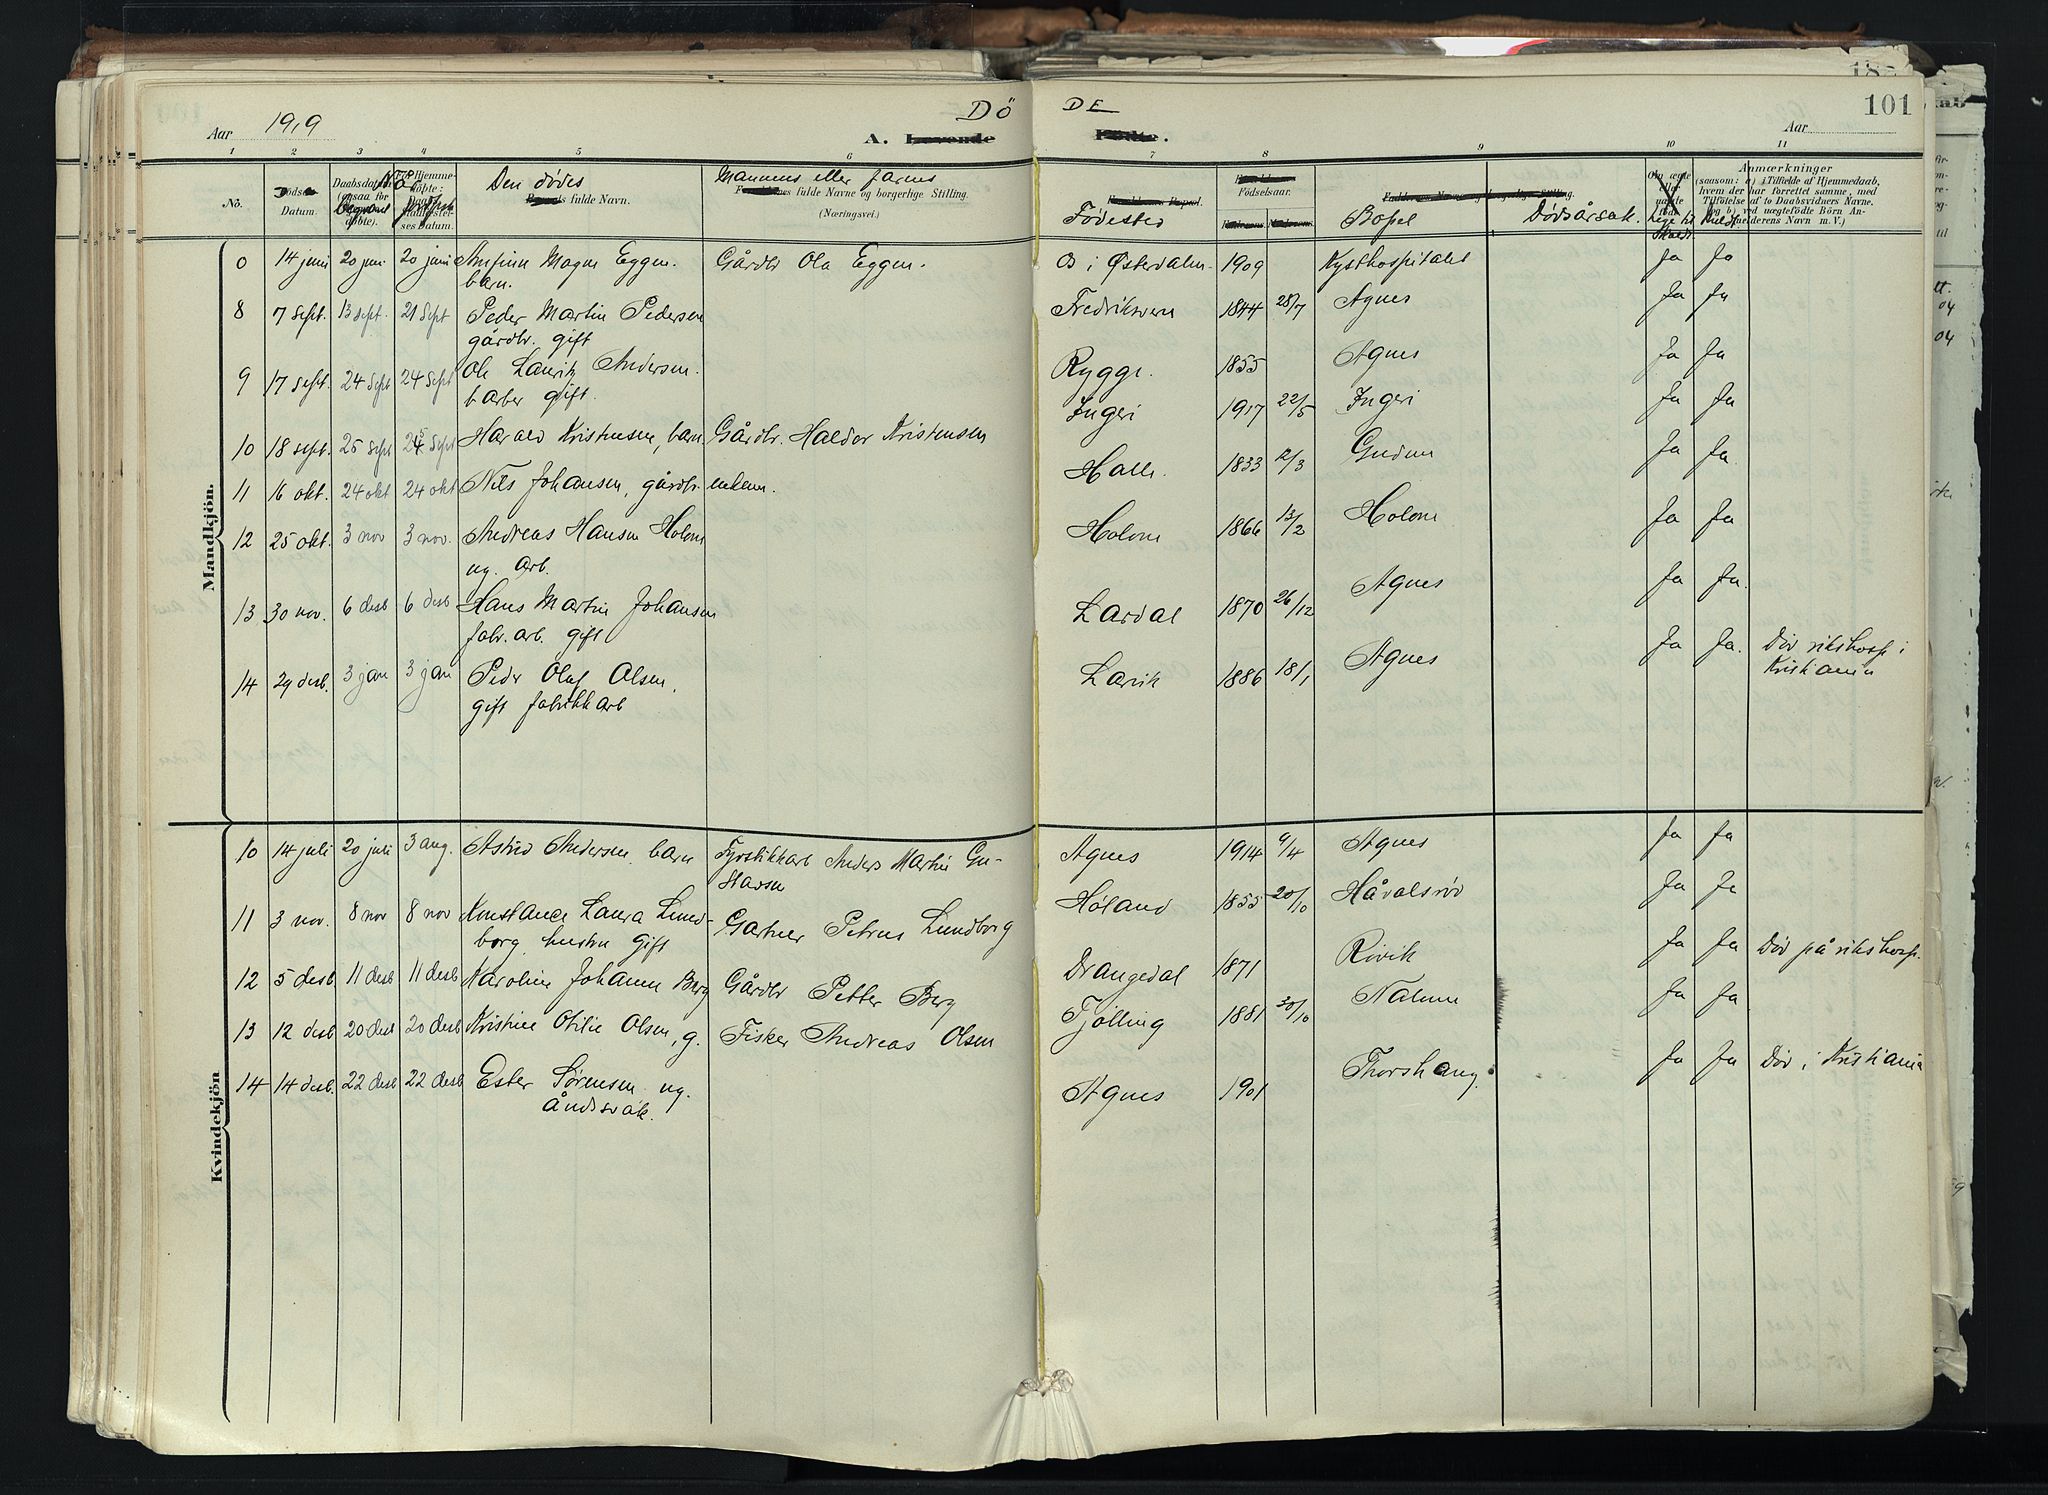 DÖ DE
101
Aar 1919
A. Levende Fødte.
Aar
1 2 3 4 5 6 7 8 9 10 11
No. Datum. Den dödes fulde Navn. Mannens eller farens fulde Navne og borgerlige Stilling. (Næringsvei.) Födested Födselsaar. Bopel Dødsårsak. Anmærkninger
Mandkjön.
0 14 juni 20 juni 20 juni Arnfinn Magne Eggen. Gårdbr Ola Eggen. Os i Østerdalen. 1909 Kysthospitalet Ja Ja
barn.
8 7 sept. 13 sept. 21 sept Peder Martin Pedersen Fredriksvern 1844 28/7 Agnes Ja Ja
gårdbr. gift
9 17 sept. 24 sept 24 sept Ole Laurits Andersen. Rygge. 1855 Agnes Ja Ja
barber gift.
10 18 sept. 25 sept 25 sept Harald Kristensen, barn Gårdbr. Haldor Kristensen Ingeri 1917 22/5 Ingeri Ja Ja
11 16 okt. 24 okt 24 okt Nils Johansen, gårdbr. enkem. Halle. 1833 12/3 Gudem Ja Ja.
12 25 okt. 3 nov 3 nov. Andreas Hansen Holom Holom 1866 13/2 Holom Ja Ja
ug. arb.
13 30 nov. 6 desb 6 desb Hans Martin Johansen Lardal 1870 26/12 Agnes Ja Ja.
fabr. arb. gift
14 29 desb. 3 jan 3 jan Peder Olaf Olsen, Larvik 1886 18/1 Agnes Ja Ja. Död rikshosp i
gift fabrikkarb Kristiania
Kvindekjön
10 14 juli 20 juli 3 aug. Astrid Andersen barn Fyrstikkarb Anders Martin Gu- Agnes 1914 9/4 Agnes Ja Ja
stavsen
11 3 nov. 8 nov 8 nov Konstance Laura Lund- Gartner Petrus Lundborg Høland 1855 20/10 Håvalsröd Ja Ja
borg hustru gift
12 5 desb 11 desb 11 desb Karoline Johanne Berg Gårdbr Petter Berg Drangedal 1871 Rövik Ja Ja Död på rikshosp.
13 12 desb 20 desb 20 desb Kristine Otilie Olsen, g. Fisker Andreas Olsen Tjølling 1881 30/10 Nalum Ja Ja
14 14 desb. 22 desb 22 desb Ester Sørensen ug. Agnes 1901 Thorshaug Ja Ja Död i Kristiania
Åndssvak.